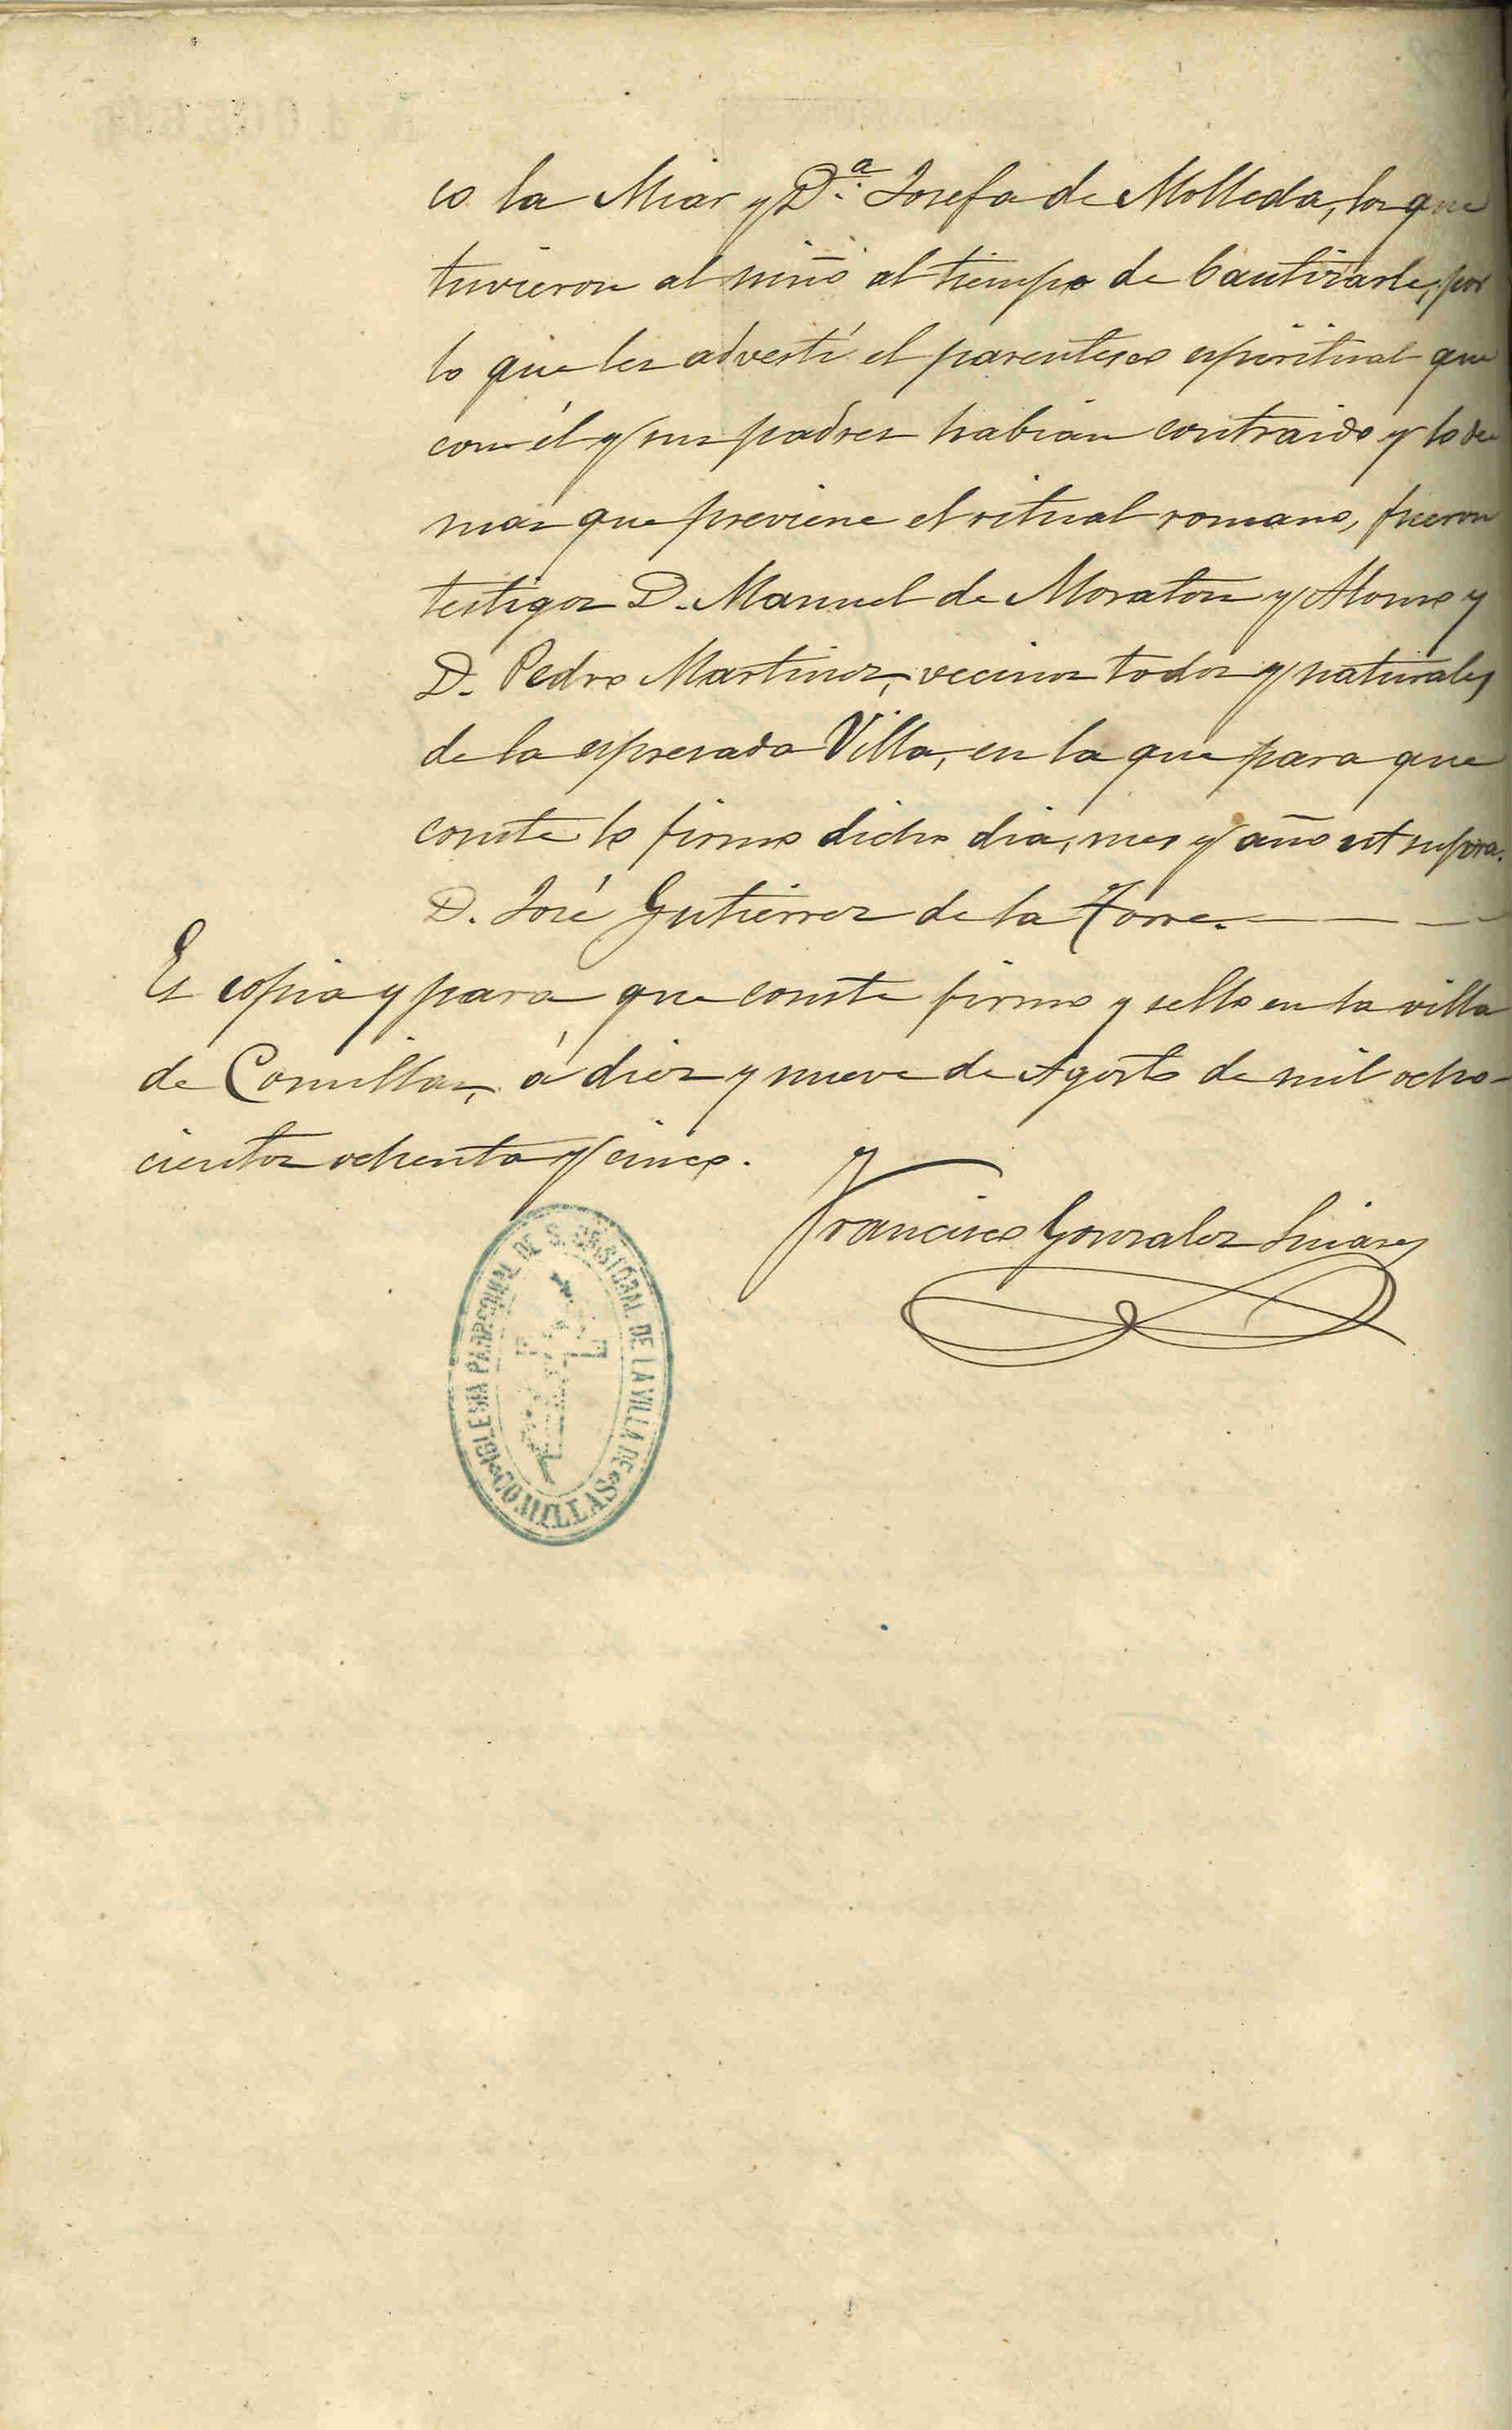 co la Miar y D.ª Josefa de Molleda, los que
tuvieron al niño al tiempo de bautizarle, por
lo que les advertí el parentesco espiritual que
con él y sus padres habian contraido y lo de
mas que previene el ritual romano, fueron
testigos D. Manuel de Moraton y Alonso y
D. Pedro Martinez, vecinos todos y naturales
de la espresada Villa, en la que para que
conste lo firmo dicho dia, mes y año ut supra.
D. José Gutierrez de la Torre.
Es copia y para que conste firmo y sello en la villa
de Comillas, á diez y nueve de Agosto de mil ocho-
cientos ochenta y cinco.
Francisco Gonzalez Suarez
IGLESIA PARROQUIAL DE S. CRISTOBAL DE LA VILLA DE
COMILLAS